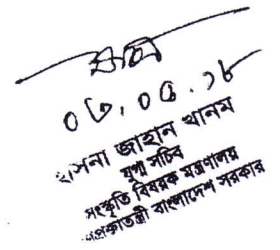 ০৬.০৫.১৮
হাসনা জাহান খানম
যুগ্ম সচিব
সংস্কৃতি বিষয়ক মন্ত্রণালয়
গণপ্রজাতন্ত্রী বাংলাদেশ সরকার